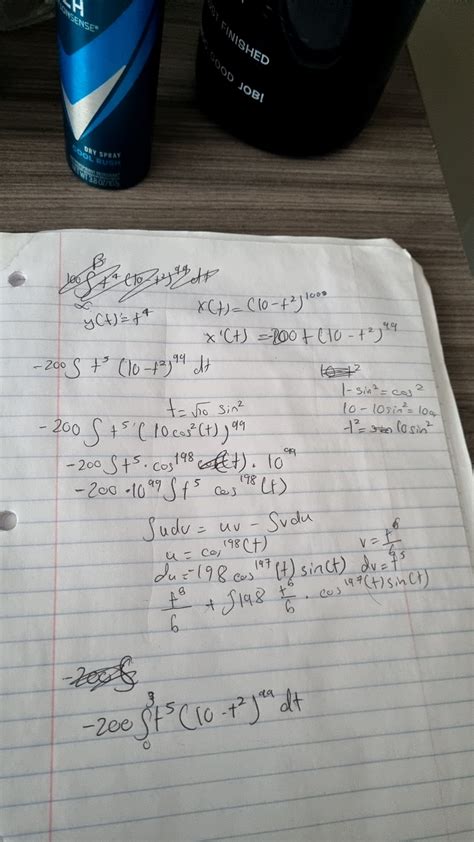 NONSENSE®
DRY SPRAY
COOL RUSH
FINISHED
GOOD JOB!
y(t)=t⁴
x(t)=(10-t²)¹⁰⁰
x'(t)=-200t(10-t²)⁹⁹
-200∫t⁵(10-t²)⁹⁹ dt
1-sin²=cos²
t=√10 sin²
10-10sin²=10
-200∫t⁵(10cos²(t))⁹⁹
-200∫t⁵·cos¹⁹⁸(t)·10⁹⁹
-200·10⁹⁹∫t⁵ cos¹⁹⁸(t)
∫udv=uv-∫vdu
u=cos¹⁹⁸(t) v=t⁶/6
du=-198cos¹⁹⁷(t)sin(t) dv=t⁵
t⁶/6+∫198 t⁶/6·cos¹⁹⁷(t)sin(t)
-200∫₀³t⁵(10-t²)⁹⁹dt